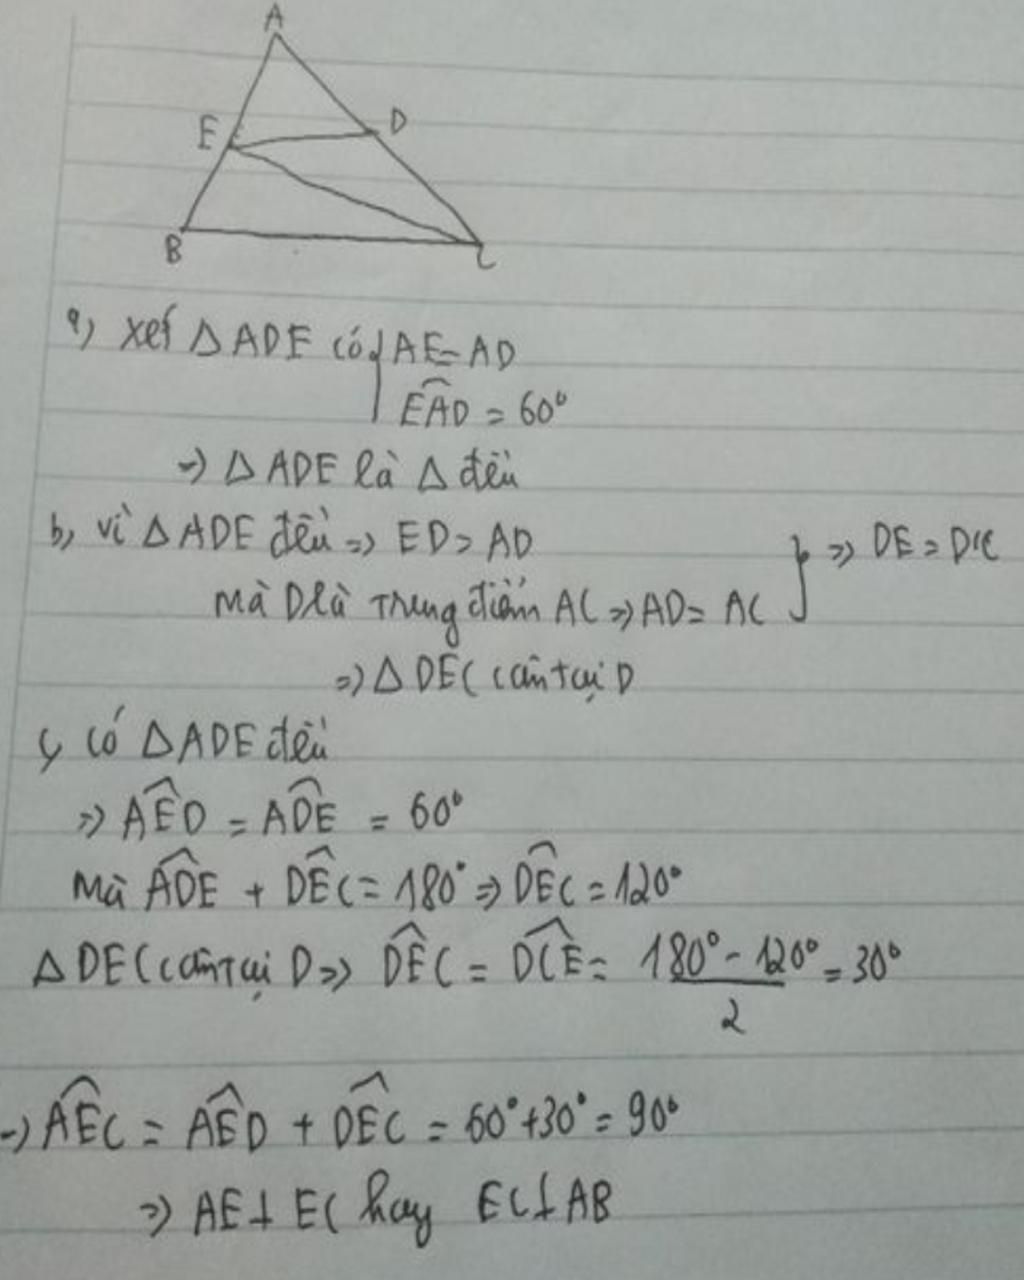 A
E
D
B
C
a, xét ΔADE có { AE = AD
EAD = 60°
=> ΔADE là Δ đều
b, vì ΔADE đều => ED = AD
mà D là trung điểm AC => AD = AC } => DE = DC
=> ΔDEC cân tại D
c, có ΔADE đều
=> AED = ADE = 60°
Mà ADE + DEC = 180° => DEC = 120°
ΔDEC cân tại D => DEC = DCE = (180° - 120°)/2 = 30°
=> AEC = AED + DEC = 60° + 30° = 90°
=> AE ⊥ EC hay EC ⊥ AB